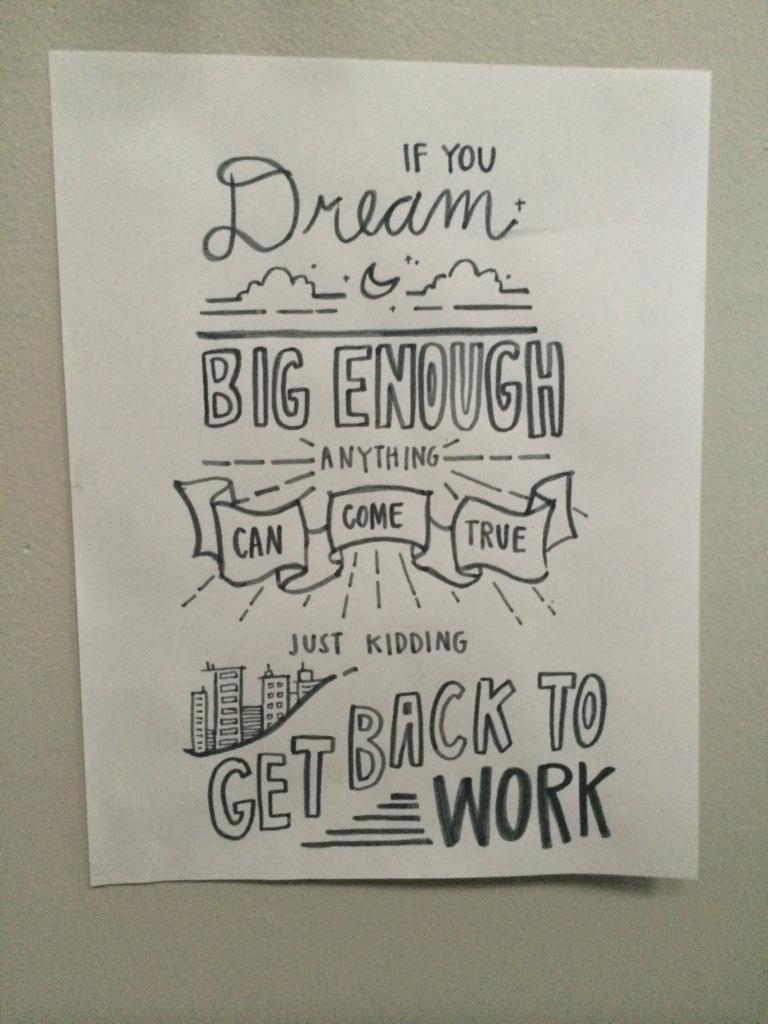 IF YOU
Dream
BIG ENOUGH
ANYTHING
CAN COME TRUE
JUST KIDDING
GET BACK TO
WORK